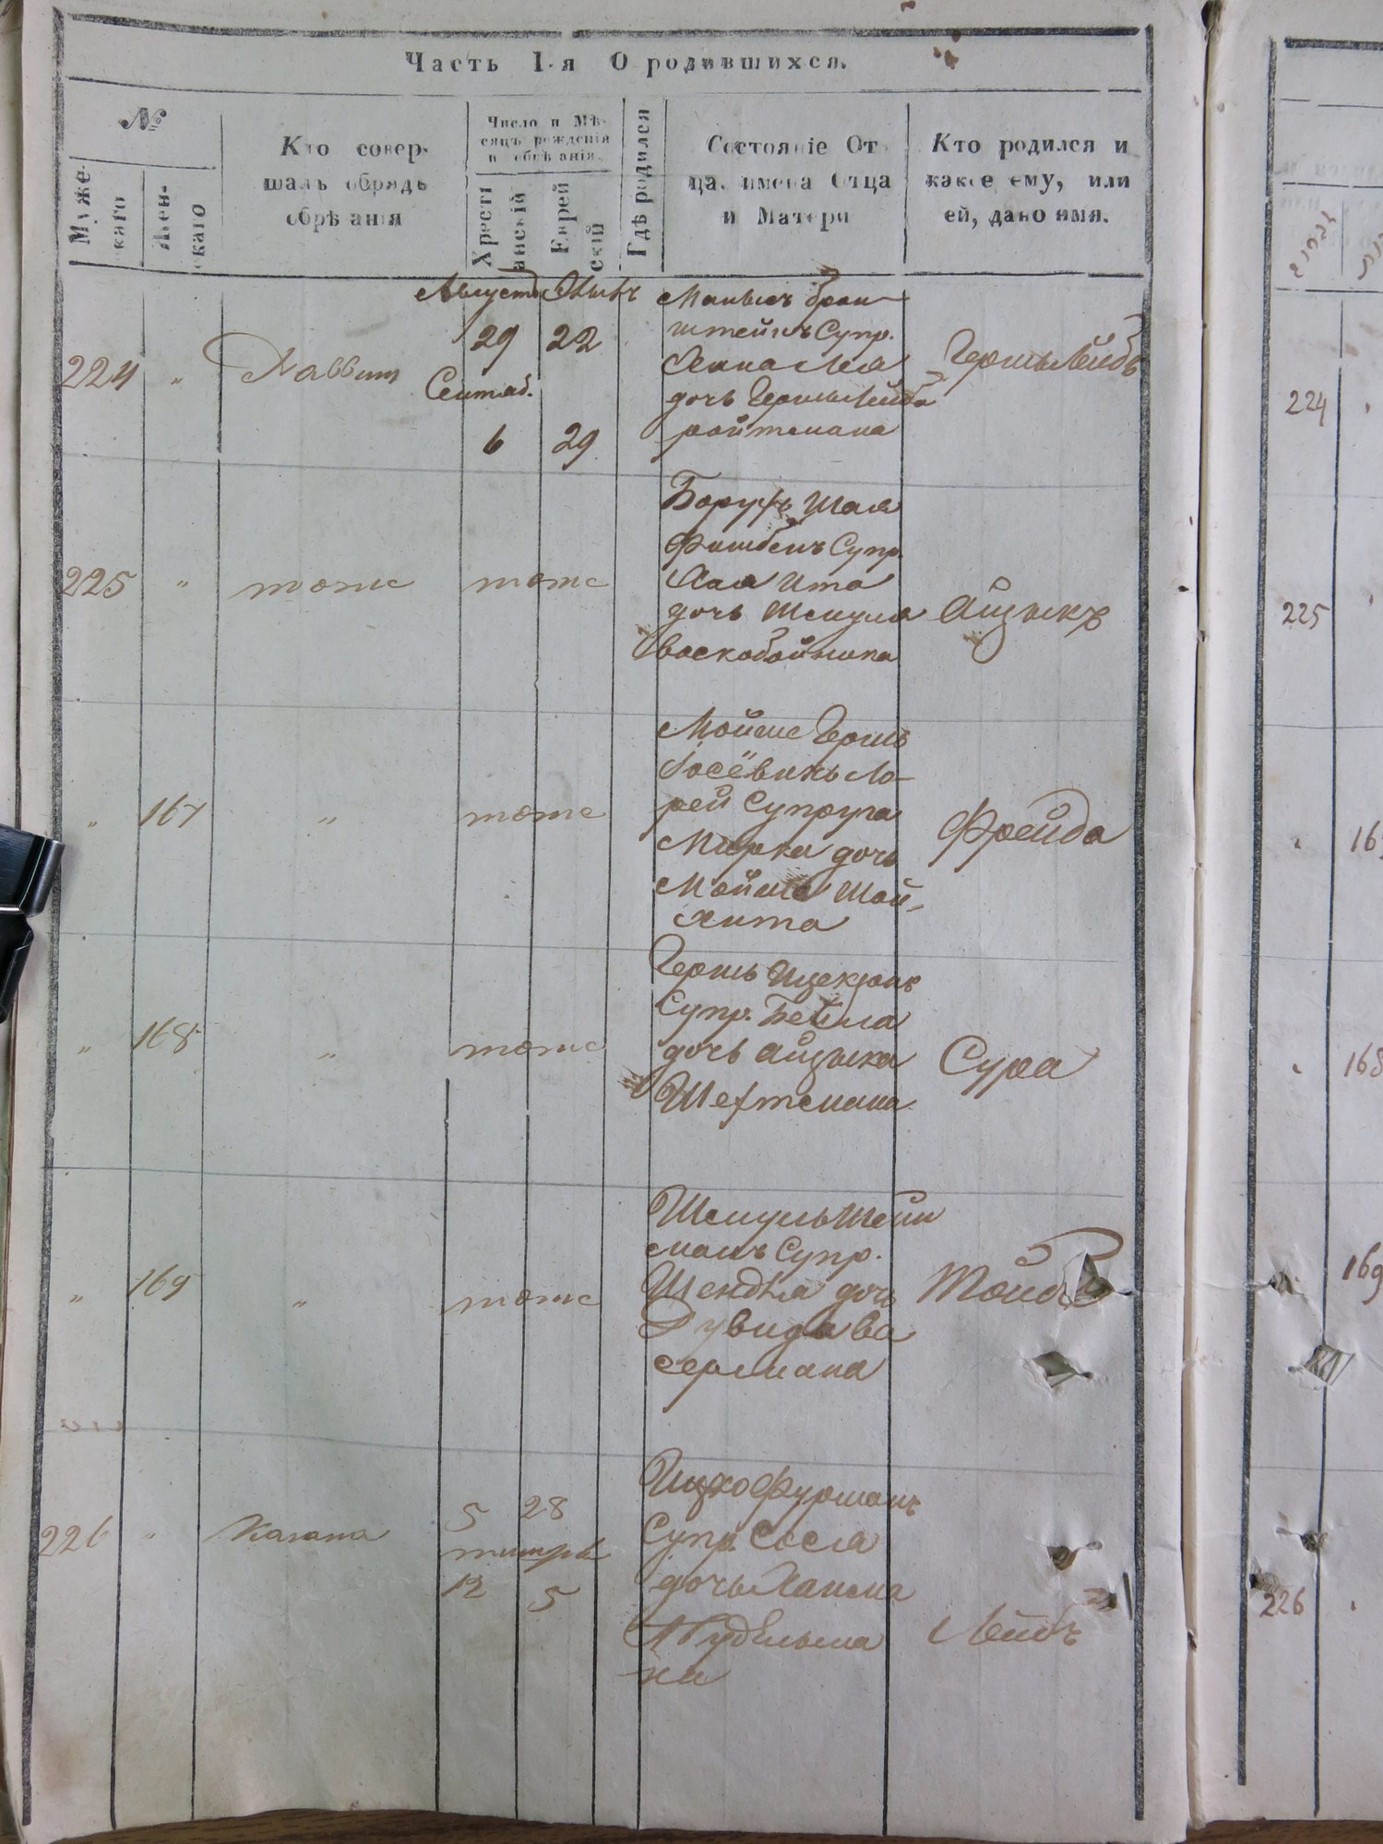 Часть I-я О родившихся.
№
Мужескаго
Женскаго
Кто совер-
шалъ обрядъ
обрѣзанія
Число и Мѣ-
сяцъ рожденія
и обрѣзанія.
Христіанскій
Еврейскій
Гдѣ родился
Состояніе От
ца, имена Отца
и Матери
Кто родился и
какое ему, или
ей, дано имя.
Августъ
29 22
Сентяб.
6 29
224 " Раввин
Маньис брон
штейнъ Супр.
Хана Леа
дочь Гершъ Лейба
ройтмана
Гершъ Лейбъ
224
225 " тоже тоже
Борухъ Шая
Фишбенъ Супр.
Хая Ита
дочь Шмуля
Воскобойника
Айзыкъ
225
" 167 " тоже
Мойше Гершъ
Іосёвичъ Ло-
рей Супруга
Мирка дочь
Мойше Шой-
хита
Фрейда
" 168 " тоже
Гершъ
Супр. Бейла
дочь Айзыка
Шехтмана
Сура
168
" 169 " тоже
Шмуль Шейн
манъ Супр.
Шендля дочь
Сермана
Тойбе
169
226 " Кагана
5 28
12 5
Ицко Фурманъ
Супр. Сося
дочь Хаима
Лейбъ
226